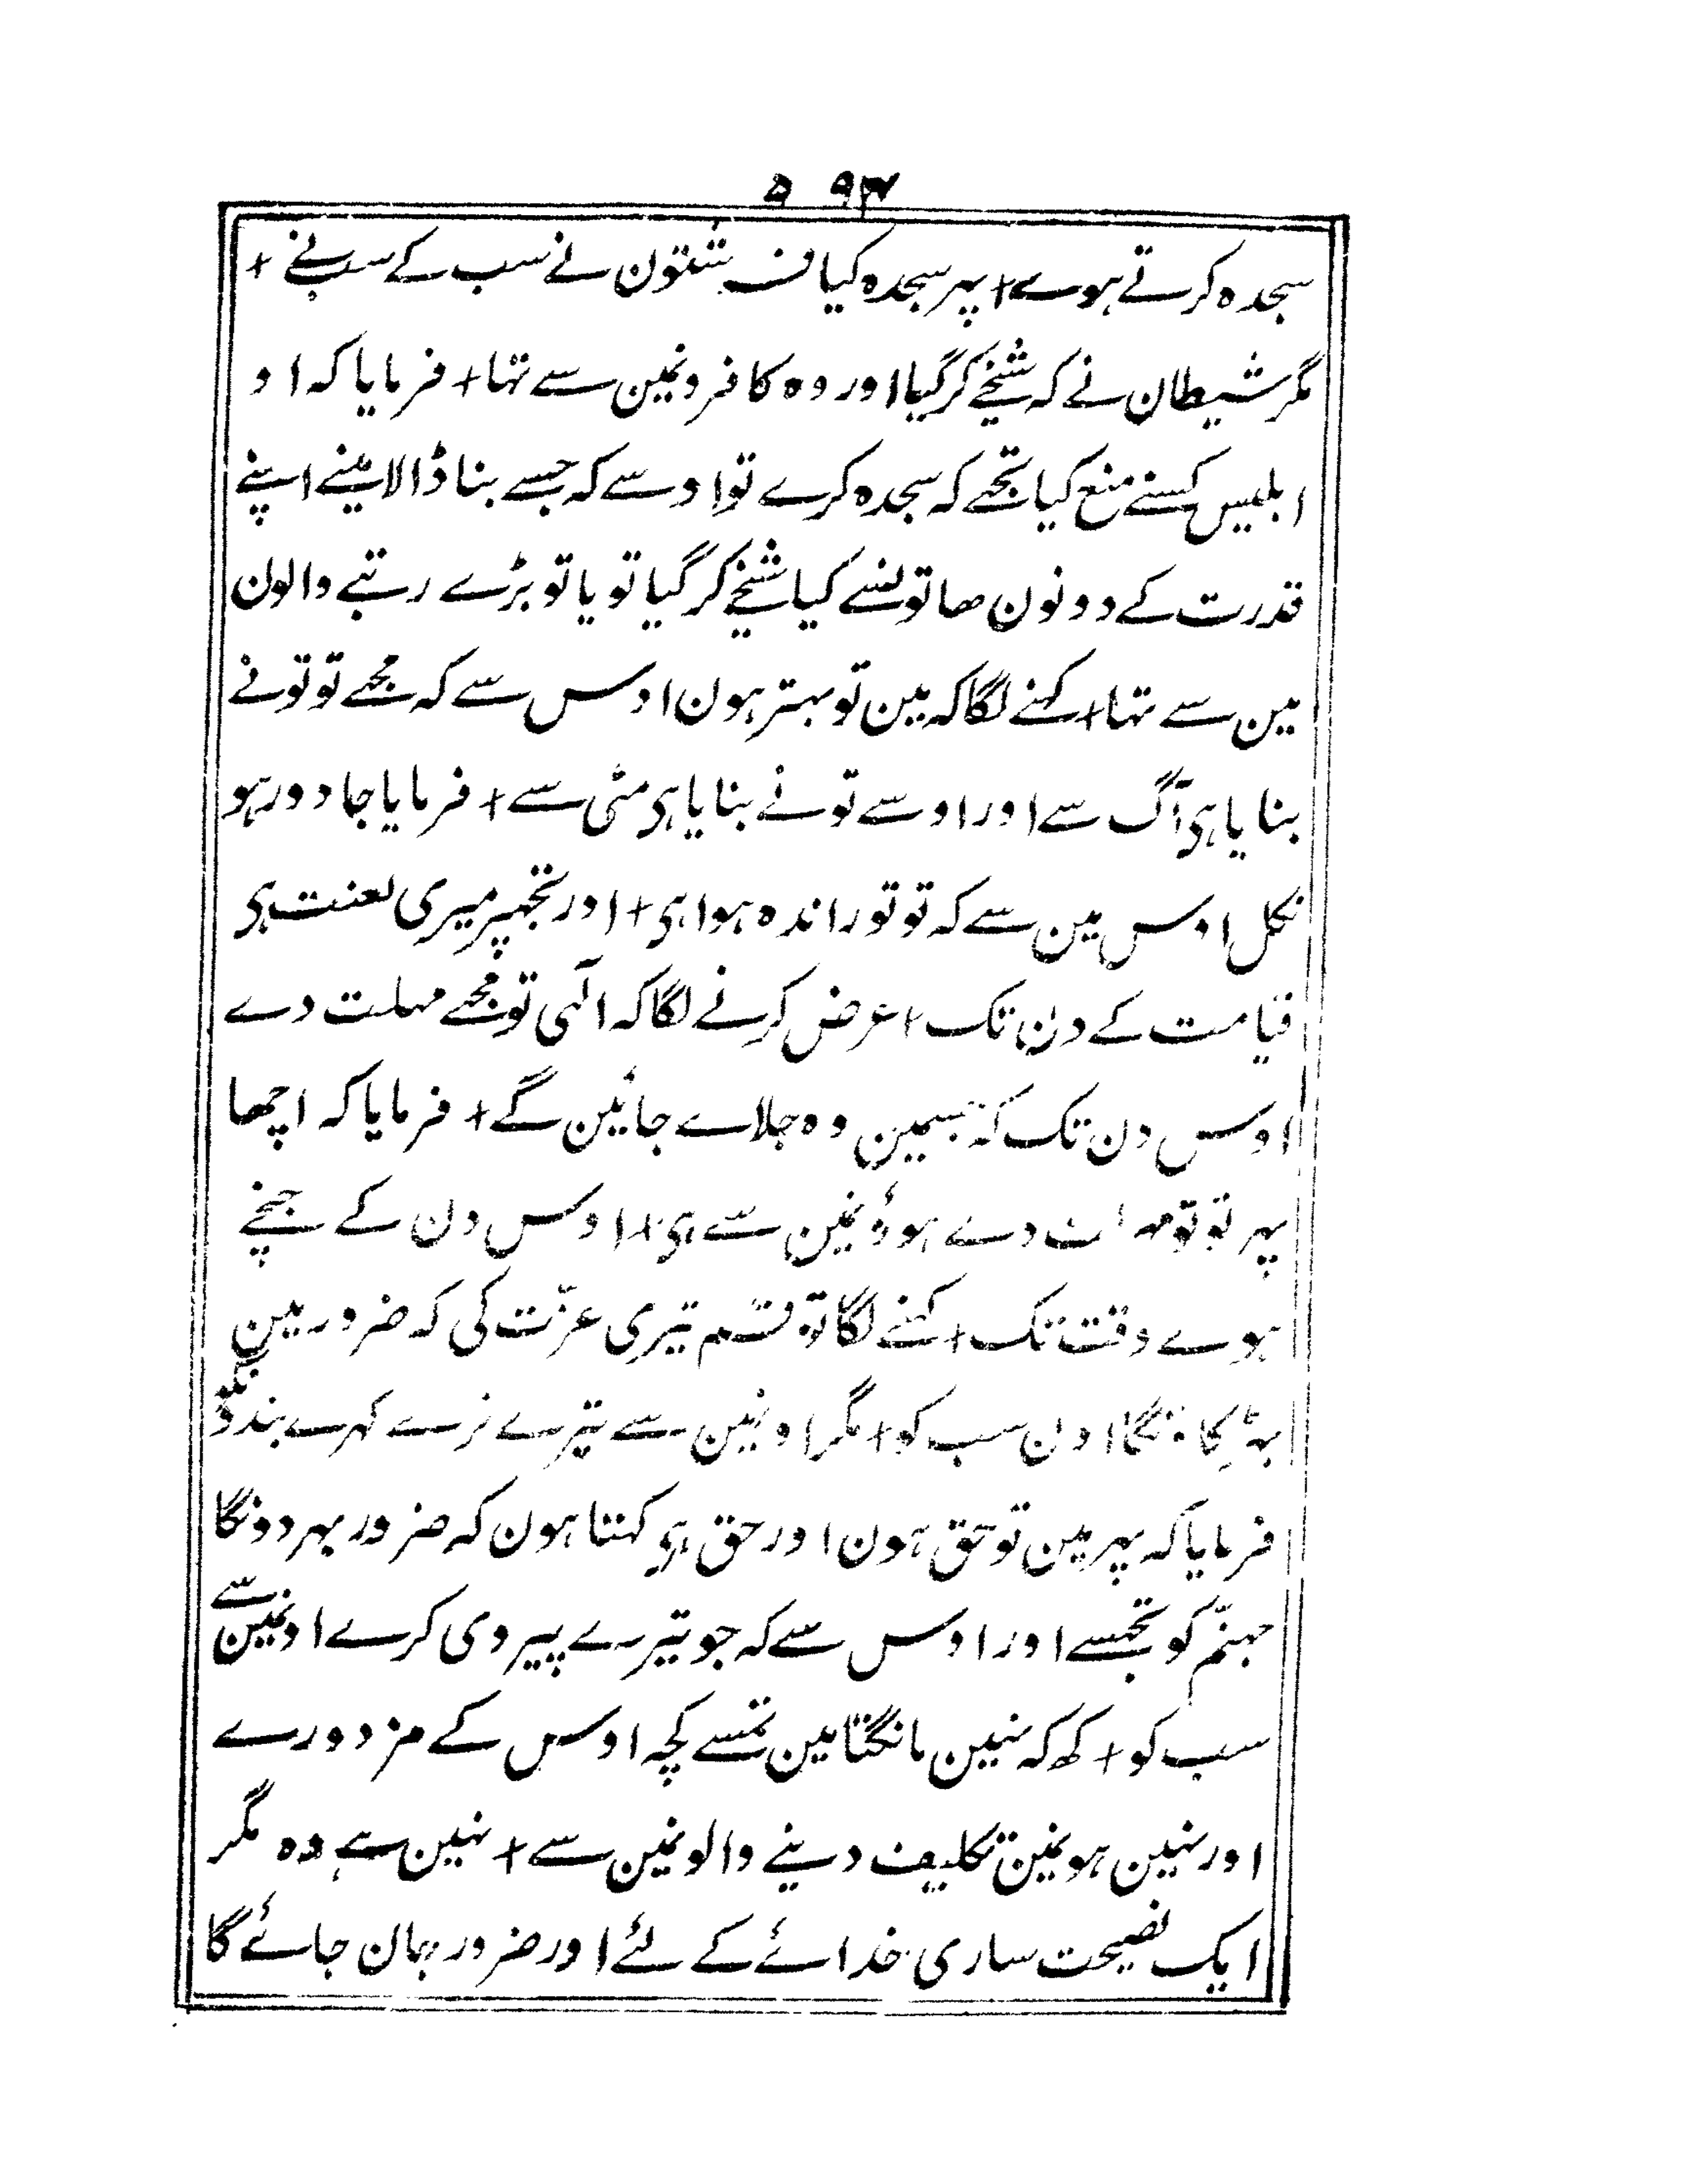 ۵۹۴
سجدہ کرتے ہوے + پہر سجدہ کیا فرشتون نے سب کے سب نے +
مگر شیطان نے کہ شیخے کر گیا اور وہ کافرونمین سے تہا + فرمایا کہ او
ابلیس کسنے منع کیا تجہے کہ سجدہ کرے تو اوسے کہ جسے بنا ڈالا مینے اپنے
قدرت کے دونون ھاتونسے کیا شیخے کر گیا تو یا تو بڑے رتبے والون
مین سے تہا + کہنے لگا کہ مین تو بہتر ہون اوس سے کہ مجہے تو تونے
بنایا ہی آگ سے اور اوسے تونے بنایا ہی مٹی سے + فرمایا جا دور ہو
نکل اوس مین سے کہ تو تو راندہ ہوا ہی + اور تجہپر میری لعنت ہی
قیامت کے دن تک + عرض کرنے لگا کہ الٰہی تو مجہے مہلت دے
اوس دن تک کہ جسمین وہ جلاے جائین گے + فرمایا کہ اچھا
پہر تو تو مہلت دے ہوؤنمین سے ہی + اوس دن کے جنچے
ہوے وقت تک + کہنے لگا تو قسم تیری عزّت کی کہ ضرور مین
اون سب کو + مگر اونمین سے تیرے نرے کہرے بندو نکو
فرمایا کہ پہر مین تو حق ہون اور حق ہی کہتا ہون کہ ضرور بہر دونگا
جہنّم کو تجہسے اور اوس سے کہ جو تیرے پیروی کرے اونمین سے
سب کو + کھ کہ نہین مانگتا مین تمسے کچہ اوس کے مزدورے
اور نہین ہونمین تکلیف دینے والونمین سے + نہین ہے وہ مگر
ایک نصیحت ساری خدائے کے لئے اور ضرور جان جائے گا